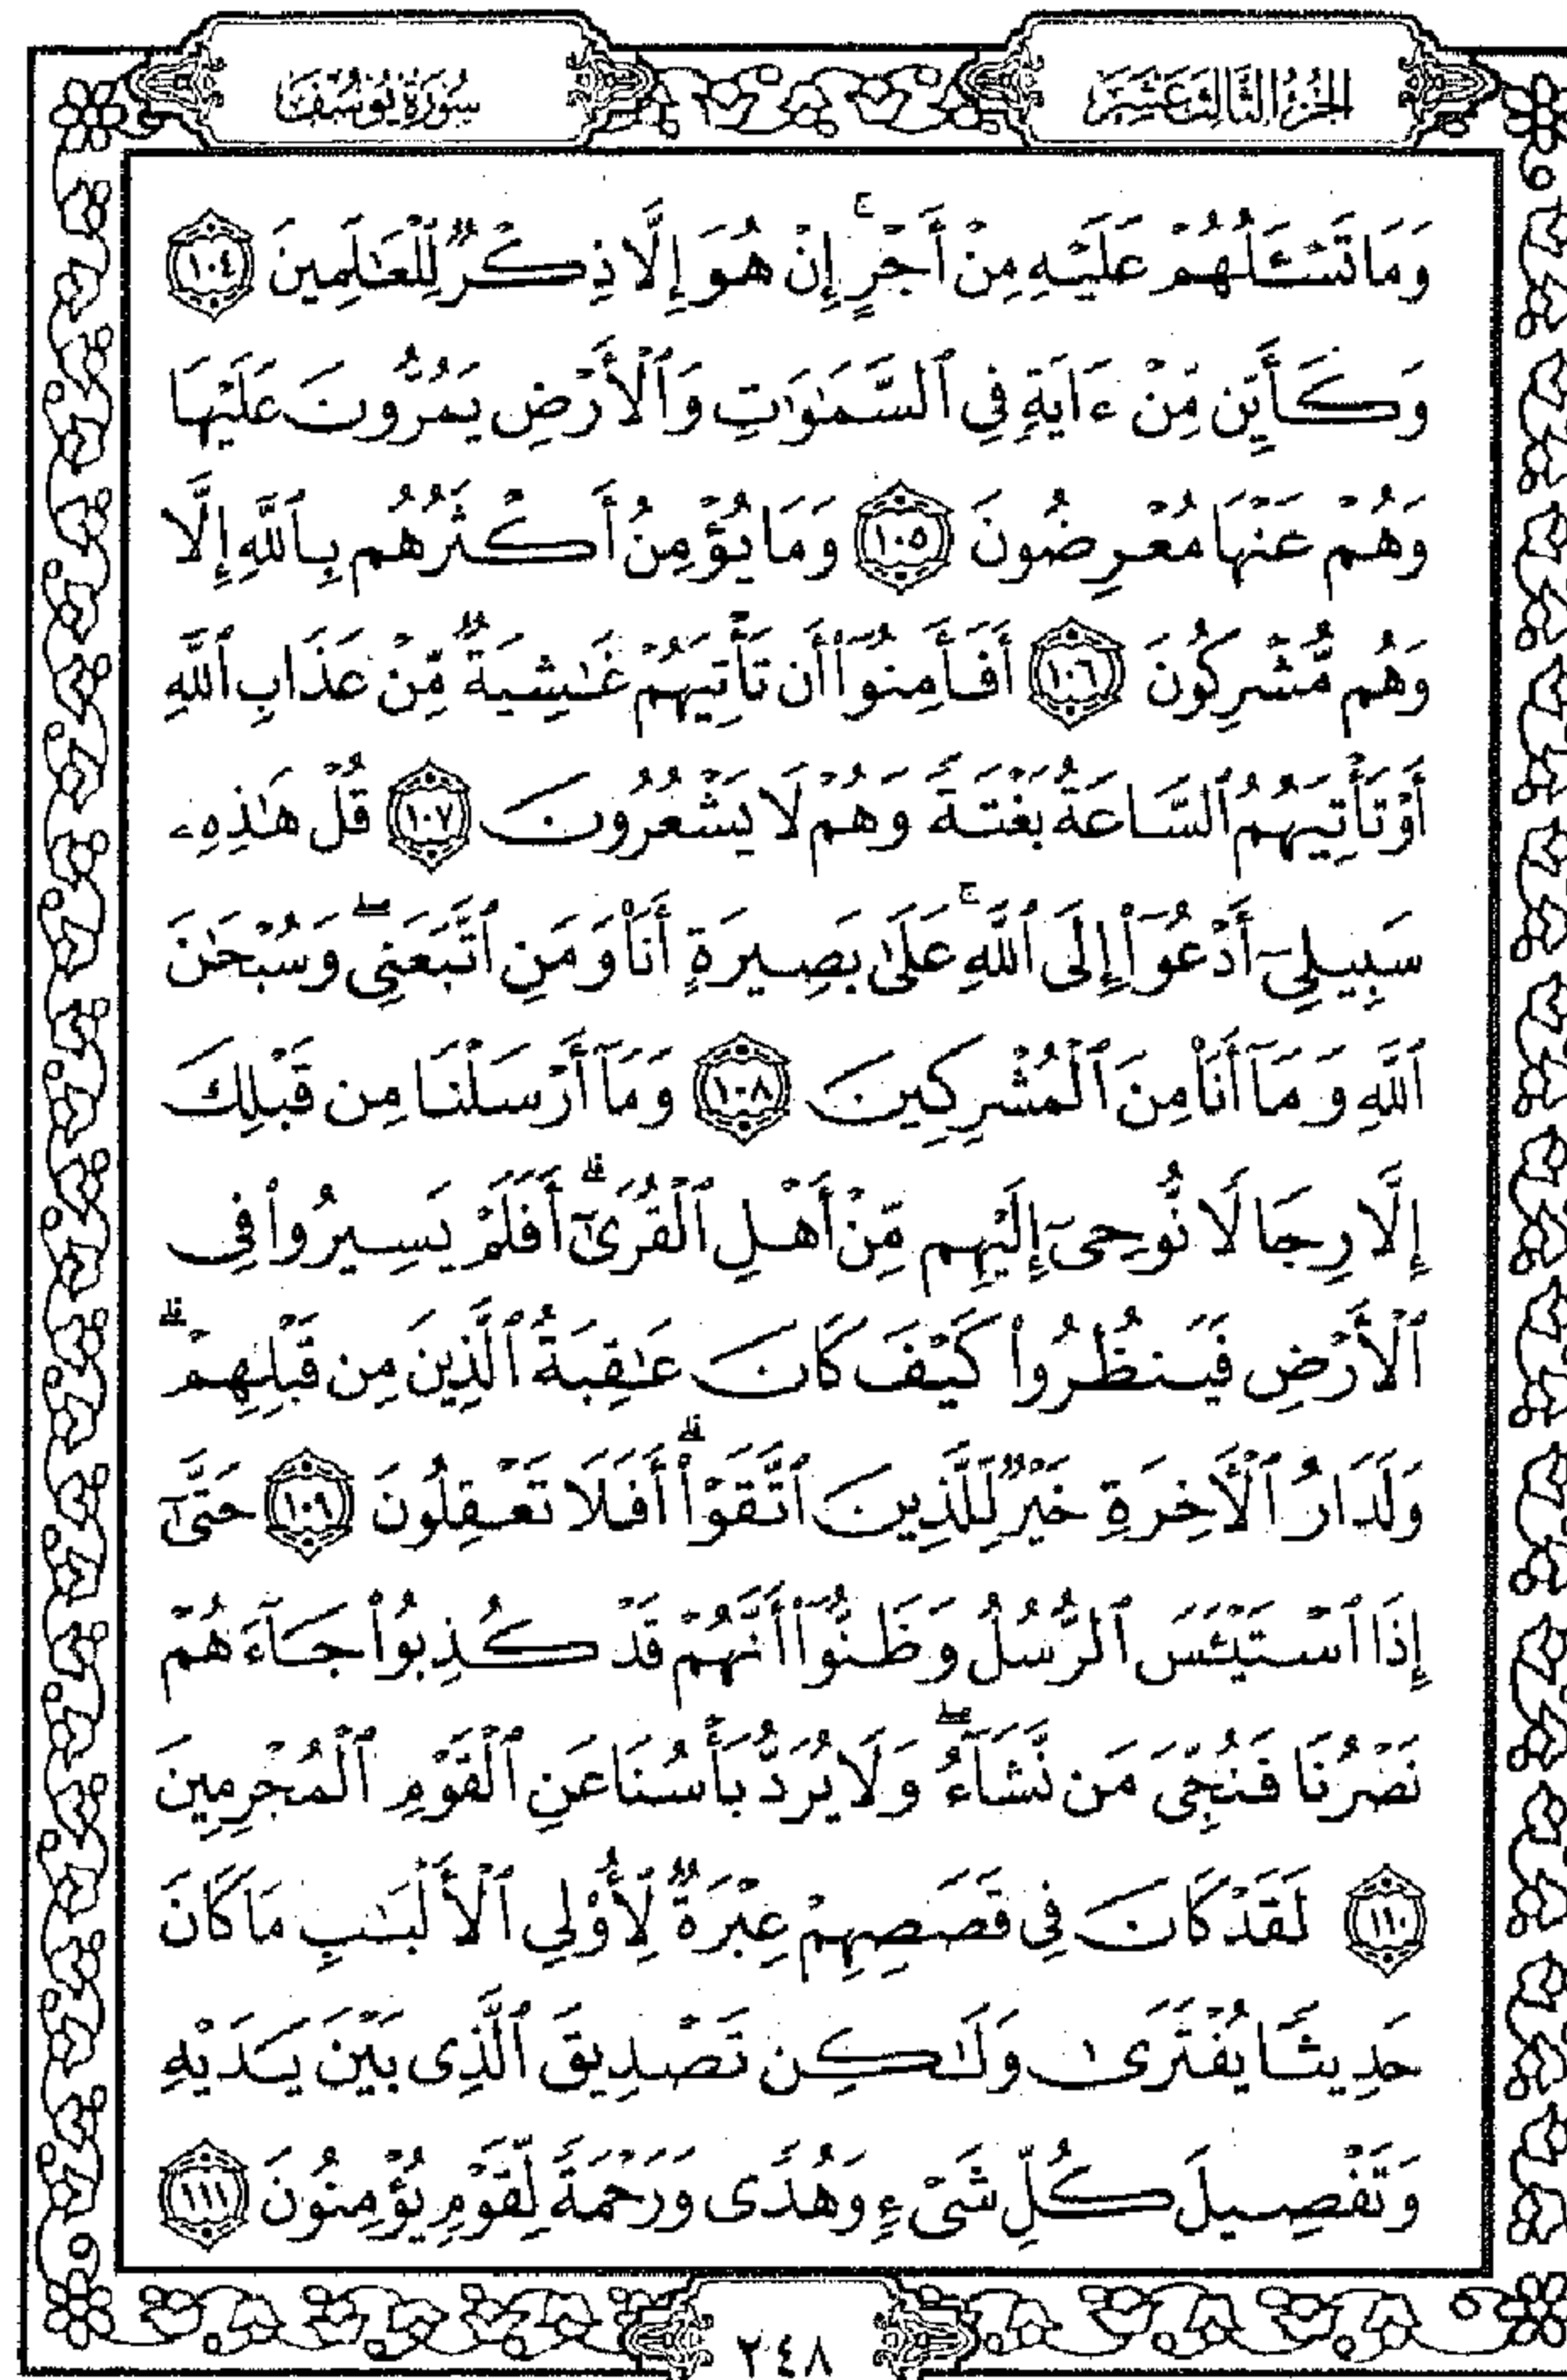 سُورَةُ يُوسُفَ
الجُزْءُ الثَّالِثَ عَشَرَ
وَمَا تَسْـَٔلُهُمْ عَلَيْهِ مِنْ أَجْرٍ ۚ إِنْ هُوَ إِلَّا ذِكْرٌ لِّلْعَٰلَمِينَ ١٠٤
وَكَأَيِّن مِّنْ ءَايَةٍ فِى ٱلسَّمَٰوَٰتِ وَٱلْأَرْضِ يَمُرُّونَ عَلَيْهَا
وَهُمْ عَنْهَا مُعْرِضُونَ ١٠٥ وَمَا يُؤْمِنُ أَكْثَرُهُم بِٱللَّهِ إِلَّا
وَهُم مُّشْرِكُونَ ١٠٦ أَفَأَمِنُوٓا۟ أَن تَأْتِيَهُمْ غَٰشِيَةٌ مِّنْ عَذَابِ ٱللَّهِ
أَوْ تَأْتِيَهُمُ ٱلسَّاعَةُ بَغْتَةً وَهُمْ لَا يَشْعُرُونَ ١٠٧ قُلْ هَٰذِهِۦ
سَبِيلِىٓ أَدْعُوٓا۟ إِلَى ٱللَّهِ ۚ عَلَىٰ بَصِيرَةٍ أَنَا۠ وَمَنِ ٱتَّبَعَنِى ۖ وَسُبْحَٰنَ
ٱللَّهِ وَمَآ أَنَا۠ مِنَ ٱلْمُشْرِكِينَ ١٠٨ وَمَآ أَرْسَلْنَا مِن قَبْلِكَ
إِلَّا رِجَالًا نُّوحِىٓ إِلَيْهِم مِّنْ أَهْلِ ٱلْقُرَىٰٓ ۗ أَفَلَمْ يَسِيرُوا۟ فِى
ٱلْأَرْضِ فَيَنظُرُوا۟ كَيْفَ كَانَ عَٰقِبَةُ ٱلَّذِينَ مِن قَبْلِهِمْ ۗ
وَلَدَارُ ٱلْءَاخِرَةِ خَيْرٌ لِّلَّذِينَ ٱتَّقَوْا۟ ۗ أَفَلَا تَعْقِلُونَ ١٠٩ حَتَّىٰٓ
إِذَا ٱسْتَيْـَٔسَ ٱلرُّسُلُ وَظَنُّوٓا۟ أَنَّهُمْ قَدْ كُذِبُوا۟ جَآءَهُمْ
نَصْرُنَا فَنُجِّىَ مَن نَّشَآءُ ۖ وَلَا يُرَدُّ بَأْسُنَا عَنِ ٱلْقَوْمِ ٱلْمُجْرِمِينَ
١١٠ لَقَدْ كَانَ فِى قَصَصِهِمْ عِبْرَةٌ لِّأُو۟لِى ٱلْأَلْبَٰبِ مَا كَانَ
حَدِيثًا يُفْتَرَىٰ وَلَٰكِن تَصْدِيقَ ٱلَّذِى بَيْنَ يَدَيْهِ
وَتَفْصِيلَ كُلِّ شَىْءٍ وَهُدًى وَرَحْمَةً لِّقَوْمٍ يُؤْمِنُونَ ١١١
٢٤٨